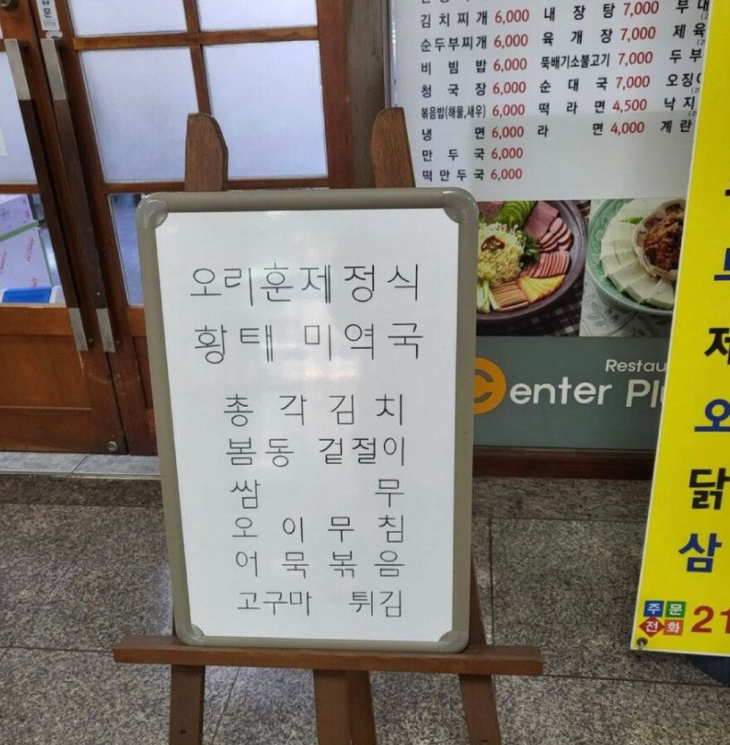 김치찌개 6,000 내장탕 7,000
순두부찌개 6,000 육개장 7,000 제육
비빔밥 6,000 뚝배기소불고기 7,000 두부
청국장 6,000 순대국 7,000
볶음밥(해물,새우) 6,000 떡라면 4,500 낙지
냉면 6,000 라면 4,000 계란
만두국 6,000
떡만두국 6,000
오리훈제정식
황태 미역국
총각김치
봄동 겉절이
쌈무
오이무침
어묵볶음
고구마 튀김
Center
오
닭
삼
주문
전화 21